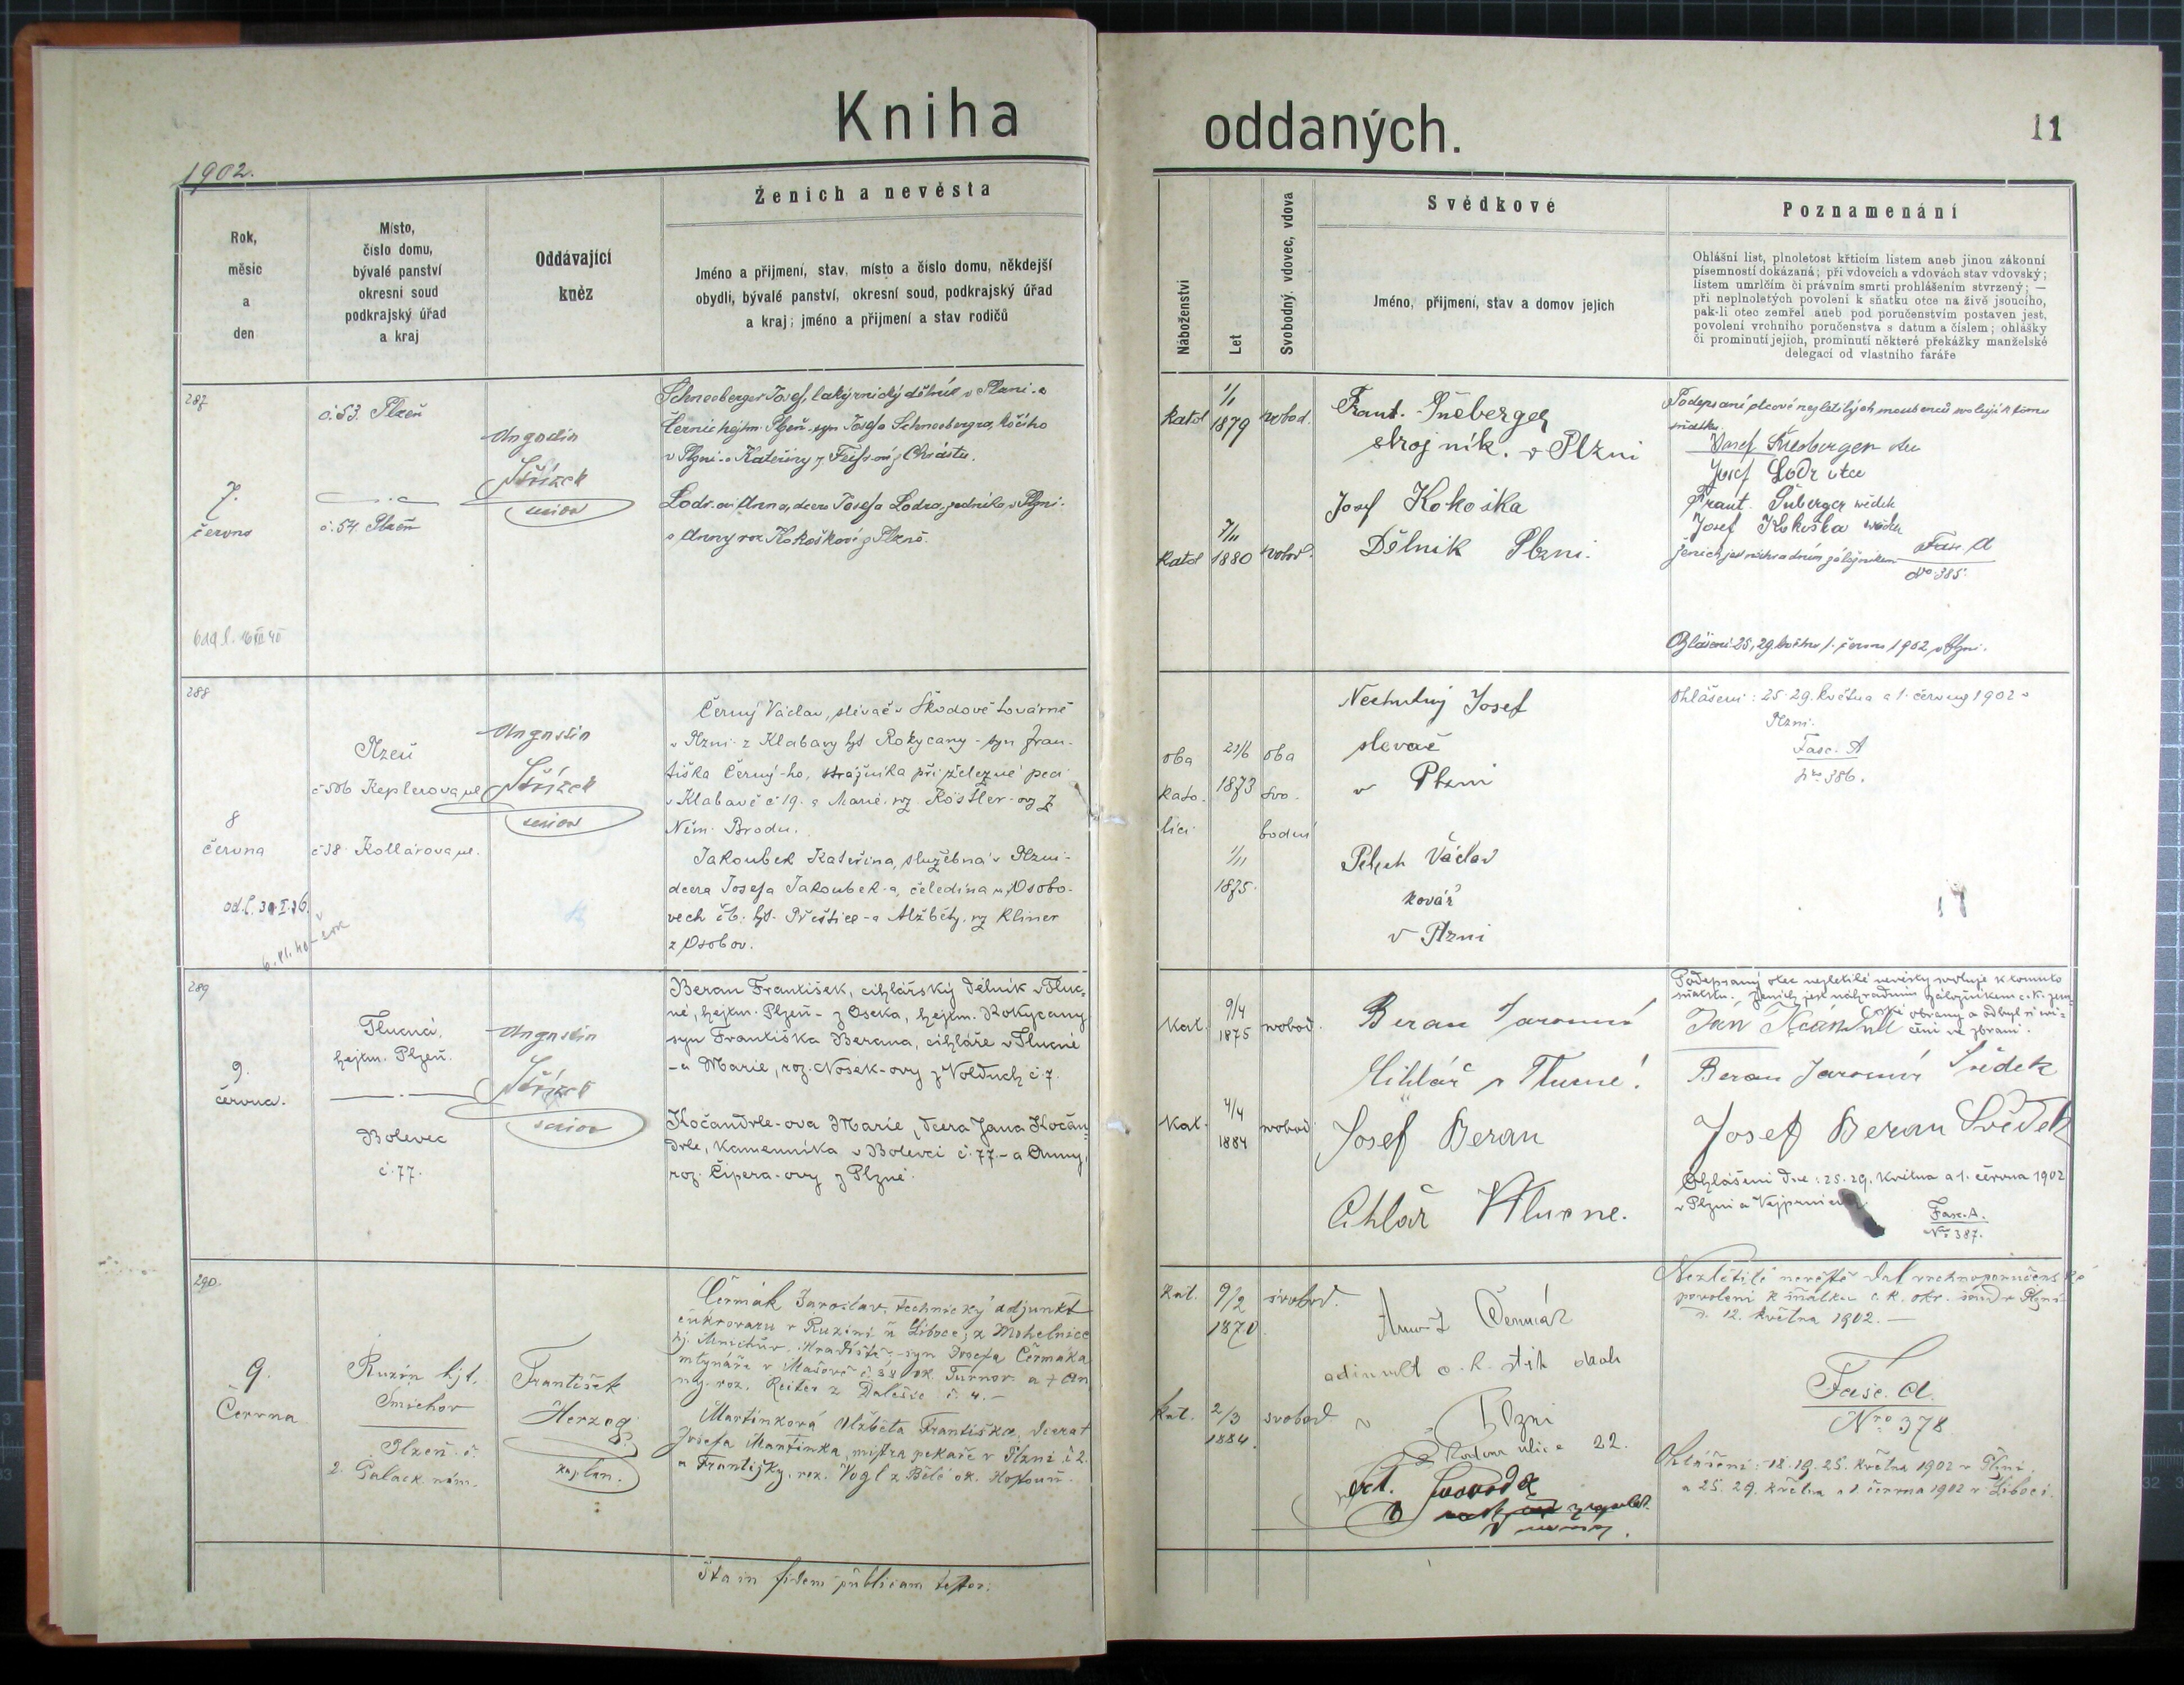 Kniha
oddaných.
11
1902.
Rok,
měsíc
a
den
Místo,
číslo domu,
bývalé panství
okresní soud
podkrajský úřad
a kraj
Oddávající
kněz
Ženich a nevěsta
Jméno a přijmení, stav, místo a číslo domu, někdejší
obydlí, bývalé panství, okresní soud, podkrajský úřad
a kraj; jméno a přijmení a stav rodičů
Náboženství
Let
Svobodný, vdovec, vdova
Svědkové
Jméno, přijmení, stav a domov jejich
Poznamenání
Ohlášní list, plnoletost křticím listem aneb jinou zákonní
písemností dokázaná; při vdovcích a vdovách stav vdovský;
listem umrlčím či právním smrti prohlášením stvrzený; —
při neplnoletých povolení k sňatku otce na živě jsoucího,
pak-li otec zemřel aneb pod poručenstvím postaven jest,
povolení vrchního poručenstva s datum a číslem; ohlášky
či prominutí jejich, prominutí některé překážky manželské
delegací od vlastního faráře
287
7.
června
č. 53. Plzeň
č. 54. Plzeň
Augustin
Střízek
senior
Schneeberger Josef, lakýrnický dělník v Plzni - z
Černic hejtm. Plzeň - syn Josefa Schneebergra, kočího
v Plzni - a Kateřiny
Lodr-ova Anna, dcera Josefa Lodra, v Plzni -
a Anny roz. Kokoškové z Plzně.
katol
1/1
1879
svobod.
katol
7/11
1880
svobod.
Frant. Šneberger
strojník. v Plzni
Josef Kokoška
Dělník Plzni.
Podepsaní otcové nezletilých snoubenců svolují k tomu
sňatku.
Josef Šneberger otec
Josef Lodr otec
Frant. Šneberger svědek
Josef Kokoška svědek
ženich jest náhradním záložníkem
Fasc. A
No 385.
Ohlášení 25, 29. května 1. června 1902 v Plzni.
288
8
června
od. l. 30. I. 26.
Plzeň
Keplerova ul
č 38 Kollárova ul.
Augustin
Střízek
senior
Černý Václav, slévač v Škodově továrně
v Plzni - z Klabavy hjt Rokycany - syn Fran-
tiška Černý-ho, strážníka při železné peci
v Klabavě č 19. a Marie, roz. Röstler-ovy z
Něm. Brodu.
Jakoubek Kateřina, služebná v Plzni -
dcera Josefa Jakoubek-a, čeledína v Osobo-
vech č 6. hjt. Přeštice - a Alžběty, roz Kliner
z Osobov.
oba
kato-
líci
21/6
1873
1/11
1875.
oba
svo-
bodní
Nechutný Josef
slevač
v Plzni
Václav
kovář
v Plzni
Ohlášení: 25. 29. května a 1. června 1902 v
Plzni.
Fasc. A
No 386.
289
9.
června.
Tlucná,
hejtm. Plzeň.
Bolevec
č. 77.
Augustin
Střízek
senior
Beran František, cihlářský dělník v Tluc-
né, hejtm. Plzeň - z Oseka, hejtm. Rokycany
syn Františka Berana, cihláře v Tlucné
- a Marie, roz. Nosek-ovy z Volduch č. 7.
Kočandrle-ova Marie, dcera Jana Kočan-
drle, kamenníka v Bolevci č. 77 - a Anny,
roz. Čipera-ovy z Plzně.
kat.
9/4
1875
svobod.
kat.
4/4
1884
svobod
Beran Jaromír
Cihlář v Tlucné.
Josef Beran
Cihlář
Podepsaný otec nezletilé nevěsty svoluje k tomuto
sňatku. Ženich jest náhradním záložníkem c. k. zem-
ské obrany a odbyl si cvi-
čení ve zbrani.
Jan
Beran Jaromír Svědek
Josef Beran Svědek
Ohlášení dne: 25. 29. května a 1. června 1902
v Plzni a
Fasc. A.
No 387.
290.
9.
Června
Ruzín hjt.
Smíchov
Plzeň č.
2. Palack. nám.
František
Herzog
kaplan.
Čermák Jaroslav, technický adjunkt
cukrovaru v Ruzíni u Liboce, z Mohelnice
hj. Mnichov. Hradiště - syn Josefa Čermáka
mlynáře v Mašově č. 38 ok. Turnov a † An-
ny roz. Reiter z Dalešic č. 4. -
Martínková Alžběta Františka, dcera †
Josefa Martínka, mistra pekaře v Plzni č 2.
a Františky, roz. Vogl z Bělé ok.
kat.
9/2
1870
svobod.
kat.
2/3
1884.
svobod
Čermák
adjunkt c. k.
v Plzni
ulice 22.
Svoboda
Nezletilé nevěstě dal vrchnoporučenské
povolení k sňatku c. k. okr. soud v Plzni
d. 12. května 1902. —
Fasc. A.
Nro 378
Ohlášení: 18. 19. 25. května 1902 v Plzni.
a 25. 29. května a 1. června 1902 v Liboci.
Ita in fidem publicam testor: